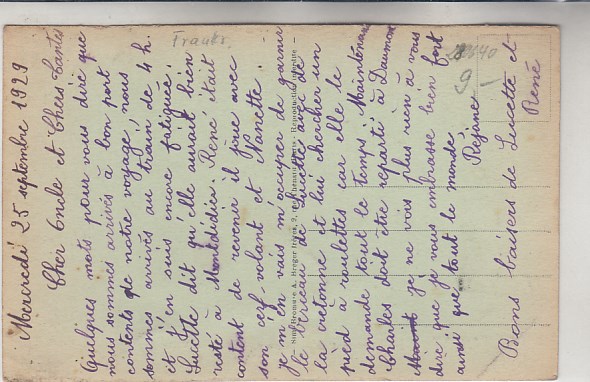 Mercredi 25 septembre 1929
Cher Oncle et Chers Tantes
Quelques mots pour vous dire que
nous sommes arrivés à bon port
contents de notre voyage, nous
sommes arrivés au train de 4 h.
et j'en suis encore fatiguée.
Lucette dit qu'elle aurait bien
resté à René était
content de revenir il joue avec
son cerf-volant et Nanette.
je vais m'occuper de garnir
le berceau de Lucette avec de
la cretonne et lui chercher un
pied à roulettes car elle le
demande tout le temps. Maintenant
Charles doit être reparti à Daumon
je ne vois plus rien à vous
dire que je vous embrasse bien fort
ainsi que tout le monde,
Régine
Bons baisers de Lucette et
René
Frankr.
9 -